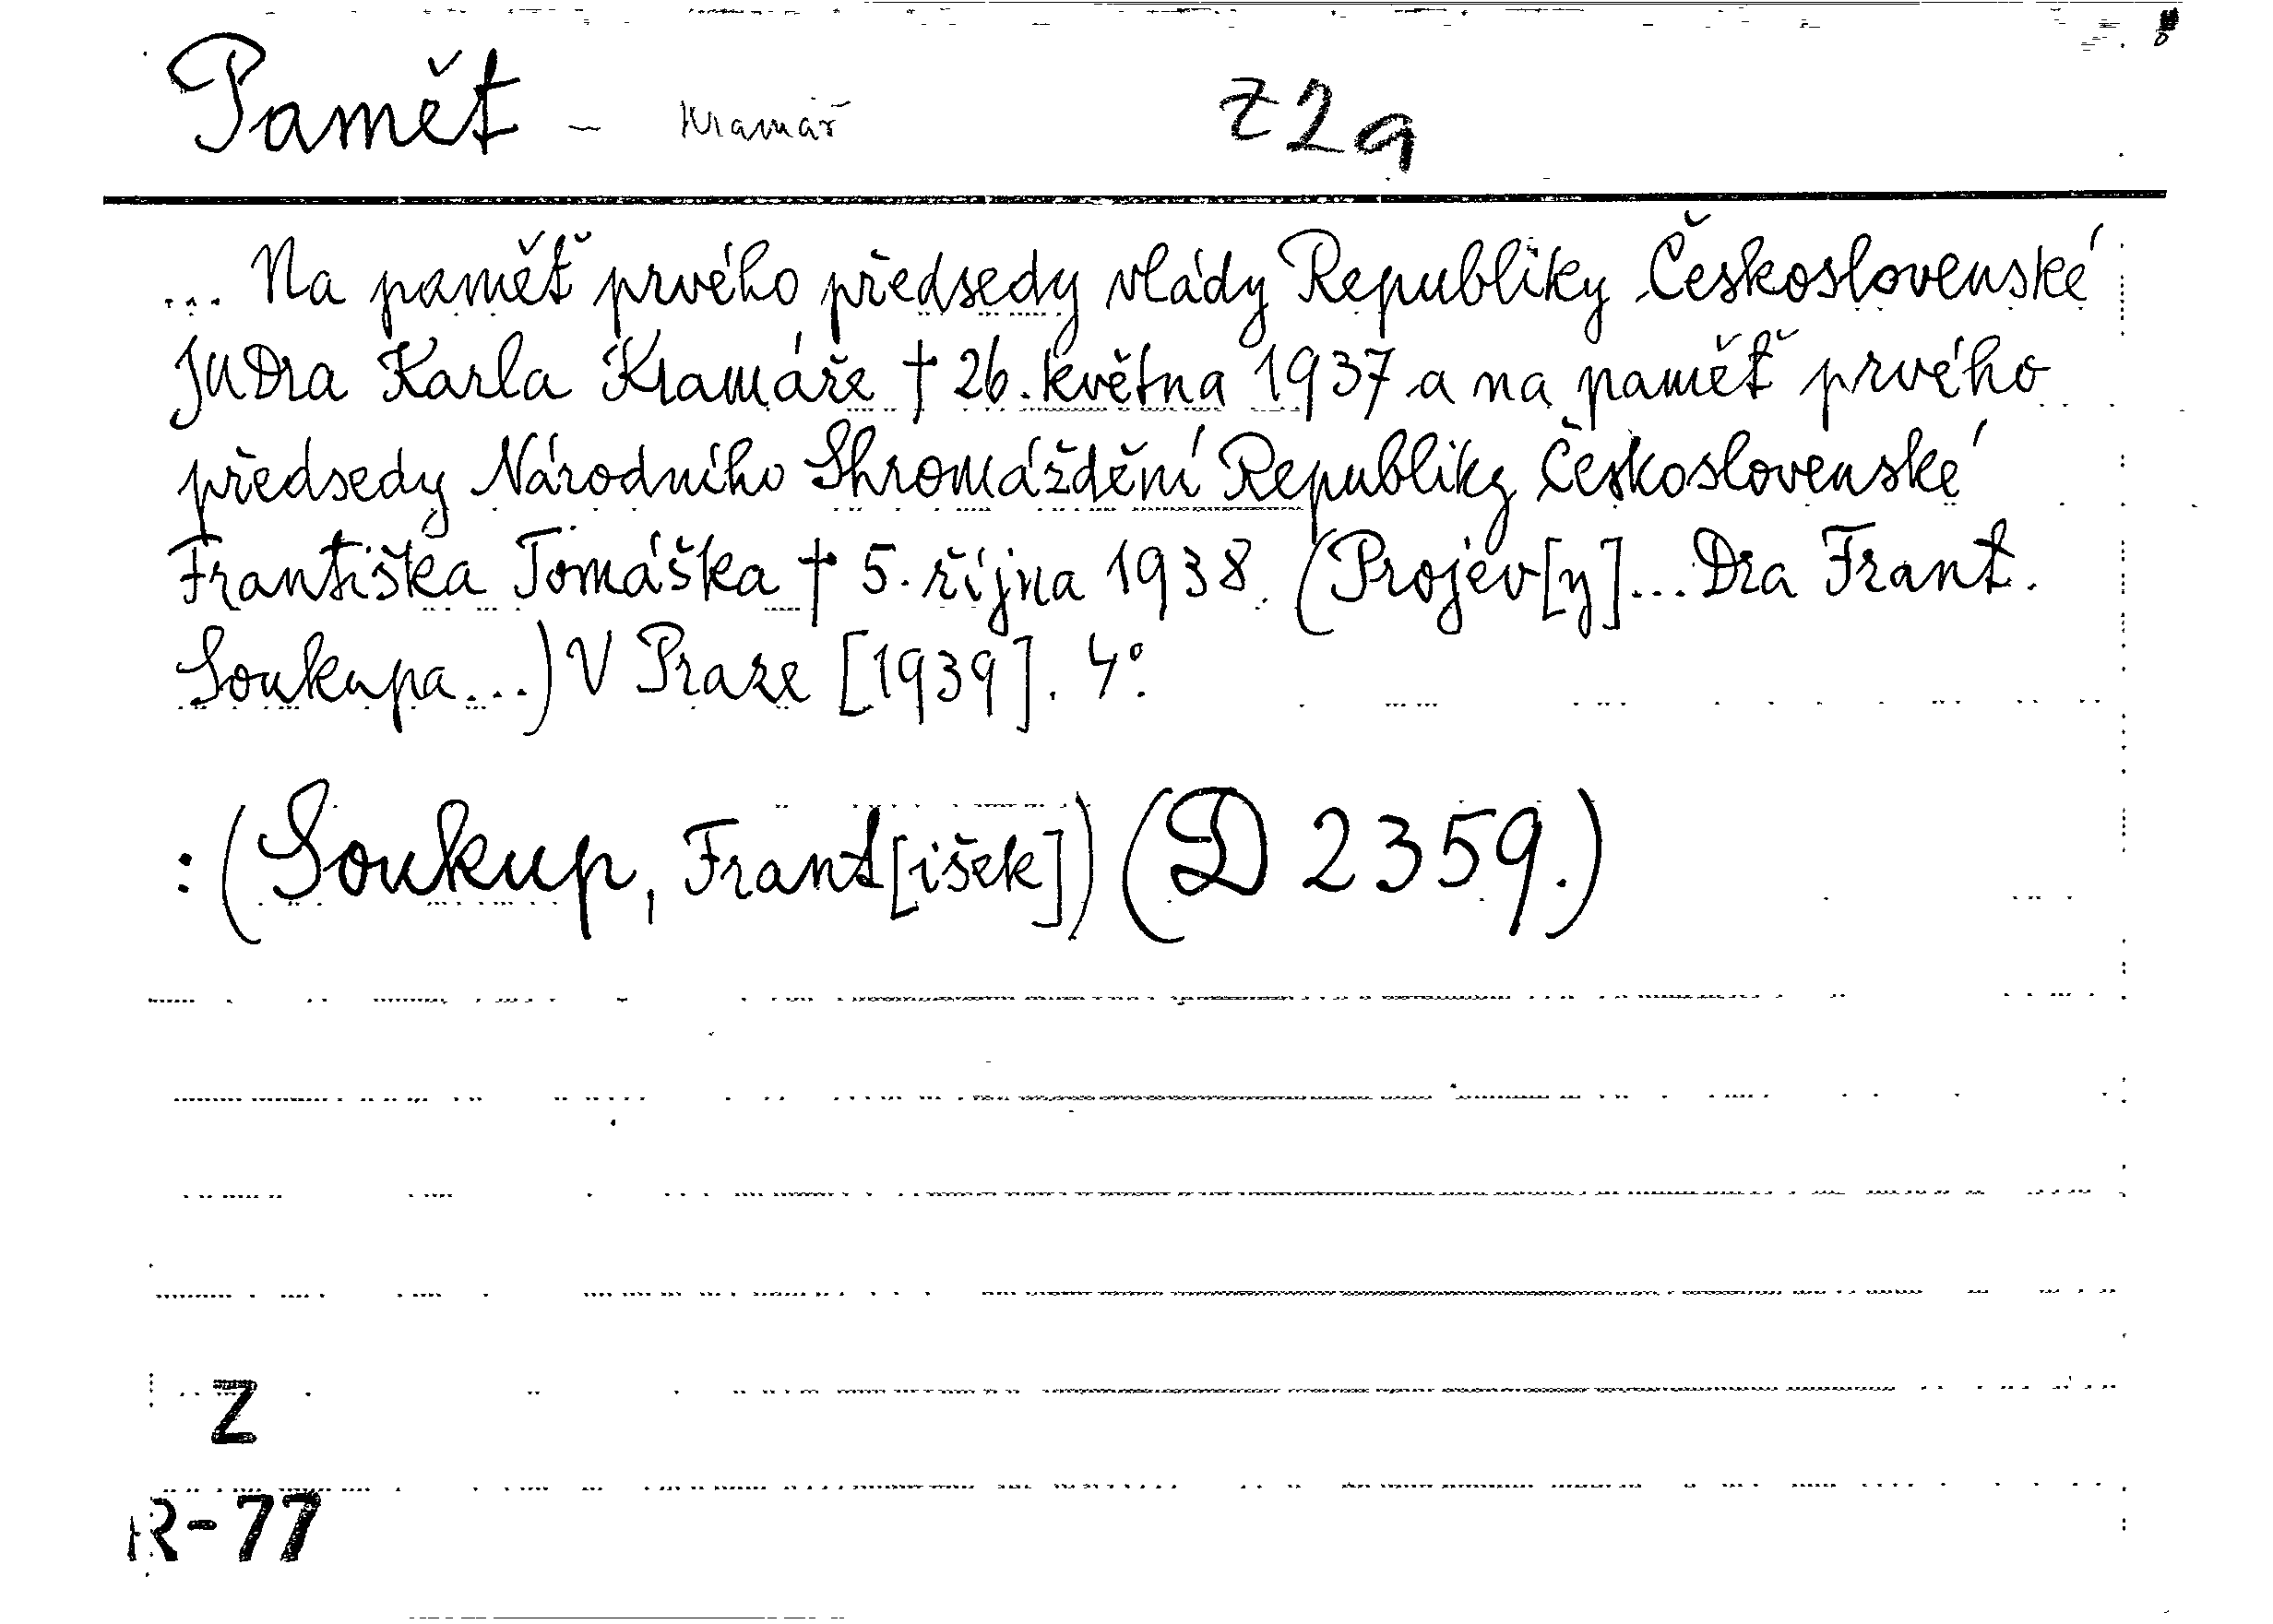 Pamět - Kramář z2a
... Na paměť prvého předsedy vlády Republiky Československé
JUDra Karla Kramáře † 26. května 1937 a na paměť prvého
předsedy Národního Shromáždění Republiky Československé
Františka Tomáška † 5. října 1938. (Projev[y]... Dra Frant.
Soukupa...) V Praze [1939]. 4°.
: (Soukup, Frant[išek]) (D 2359.)
Z
R-77